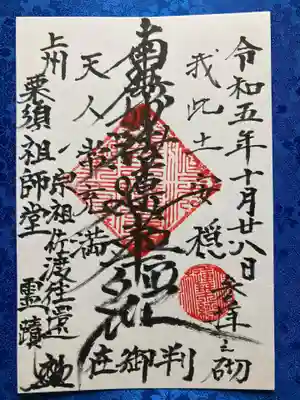 令和五年十月廿八日
参拝之砌
我此土安穏
南無妙法蓮華経
天人常充満
上州
栗須祖師堂
宗祖佐渡往還
霊蹟
在御判